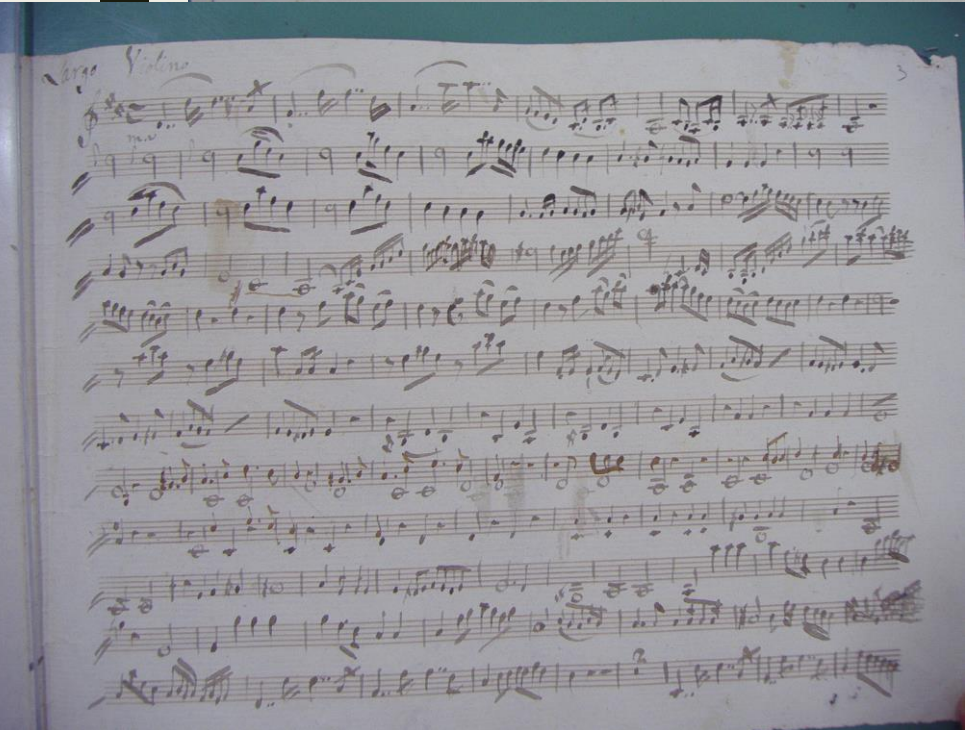 Largo Violino
3